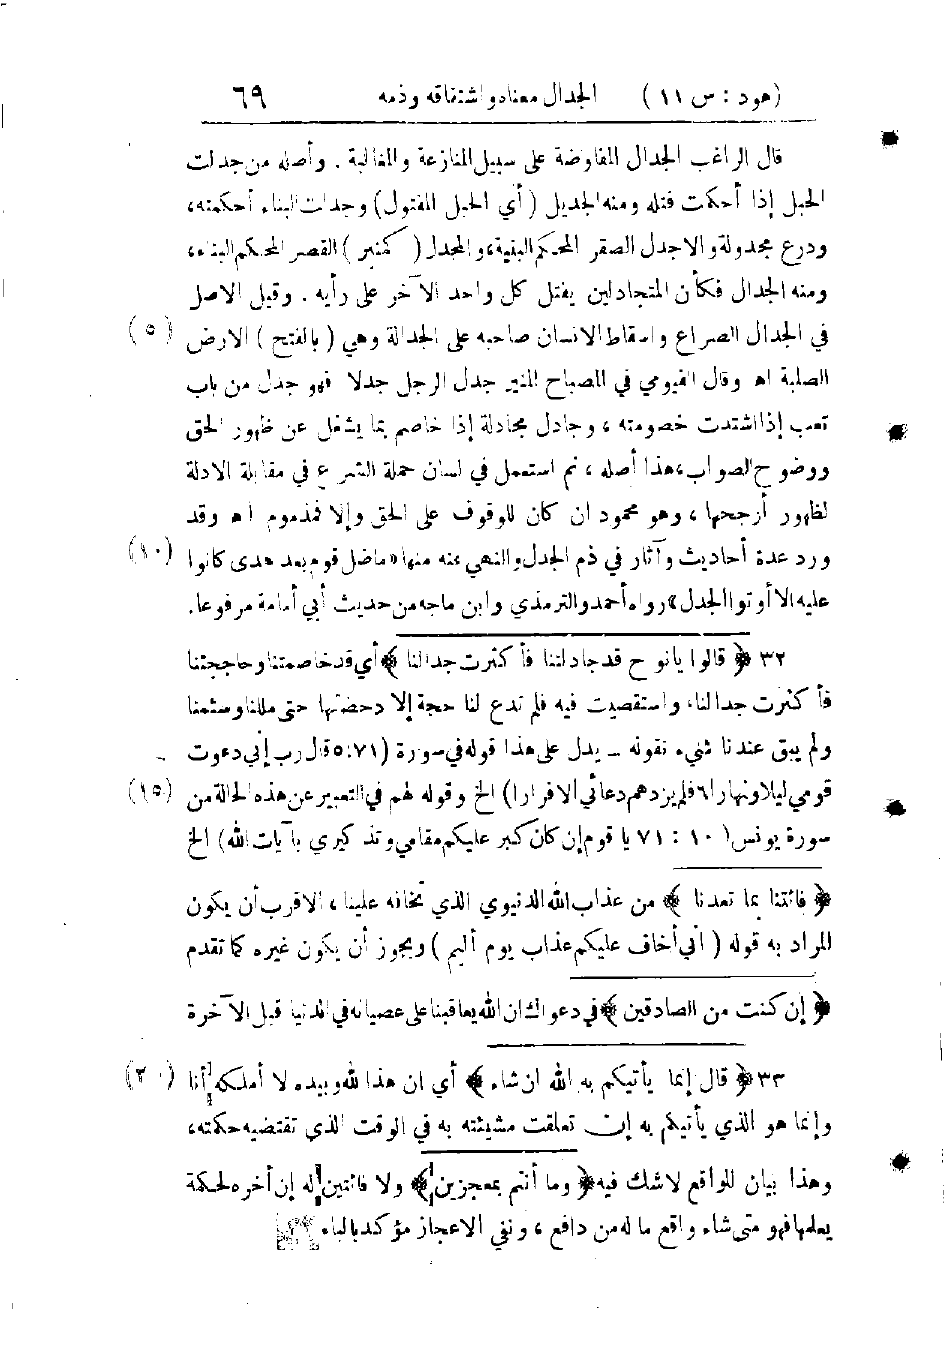 (هود : س ١١) الجدال معناه واشتقاقه وذمه ٦٩
قال الراغب الجدال المفاوضة على سبيل المنازعة والمغالبة . وأصله من جدلت
الحبل إذا أحكمت فتله ومنه الجديل (أي الحبل المفتول) وجدلت البناء أحكمته،
ودرع مجدولة والاجدل الصقر المحكم البنية، والمجدل (كمنبر) القصر المحكم البناء،
ومنه الجدال فكأن المتجادلين يفتل كل واحد الآخر على رأيه . وقيل الاصل
في الجدال الصراع واسقاط الانسان صاحبه على الجدالة وهي (بالفتح) الارض (٥)
الصلبة اه وقال الفيومي في المصباح المنير جدل الرجل جدلا فهو جدل من باب
تعب إذا اشتدت خصومته ، وجادل مجادلة إذا خاصم بما يشغل عن ظهور الحق
ووضوح الصواب، هذا أصله ، ثم استعمل في لسان حملة الشرع في مقابلة الادلة
لظهور أرجحها ، وهو محمود ان كان للوقوف على الحق وإلا فمذموم اه وقد
ورد عدة أحاديث وآثار في ذم الجدل والنهي عنه منها «ماضل قوم بعد هدى كانوا (١٠)
عليه الا أوتوا الجدل» رواه أحمد والترمذي وابن ماجه من حديث أبي أمامة مرفوعا.
٣٢ ﴿ قالوا يانوح قد جادلتنا فأكثرت جدالنا ﴾ أي قد خاصمتنا وحاججتنا
فأكثرت جدالنا، واستقصيت فيه فلم تدع لنا حجة إلا دحضتها حتى مللنا وسئمنا
ولم يبق عندنا شيء نقوله – يدل على هذا قوله في سورة (٥:٧١ قال رب إني دعوت
قومي ليلا ونهارا ٦ فلم يزدهم دعائي الا فرارا) الخ وقوله لهم في التعبير عن هذه الحالة من (١٥)
سورة يونس (١٠ : ٧١ يا قوم إن كان كبر عليكم مقامي وتذكيري بآيات الله) الخ
﴿ فائتنا بما تعدنا ﴾ من عذاب الله الدنيوي الذي تخافه علينا ، الاقرب أن يكون
المراد به قوله ( اني أخاف عليكم عذاب يوم أليم ) ويجوز أن يكون غيره كما تقدم
﴿ إن كنت من الصادقين ﴾ في دعواك ان الله يعاقبنا على عصيانه في الدنيا قبل الآخرة
٣٣ ﴿ قال إنما يأتيكم به الله ان شاء ﴾ أي ان هذا لله وبيده لا أملكه أنا (٢٠)
وإنما هو الذي يأتيكم به إن تعلقت مشيئته به في الوقت الذي تقتضيه حكمته،
وهذا بيان للواقع لاشك فيه ﴿ وما أنتم بمعجزين ﴾ ولا فائتين له إن أخره لحكمة
يعلمها فهو متى شاء واقع ما له من دافع ، ونفي الاعجاز مؤكد بالباء